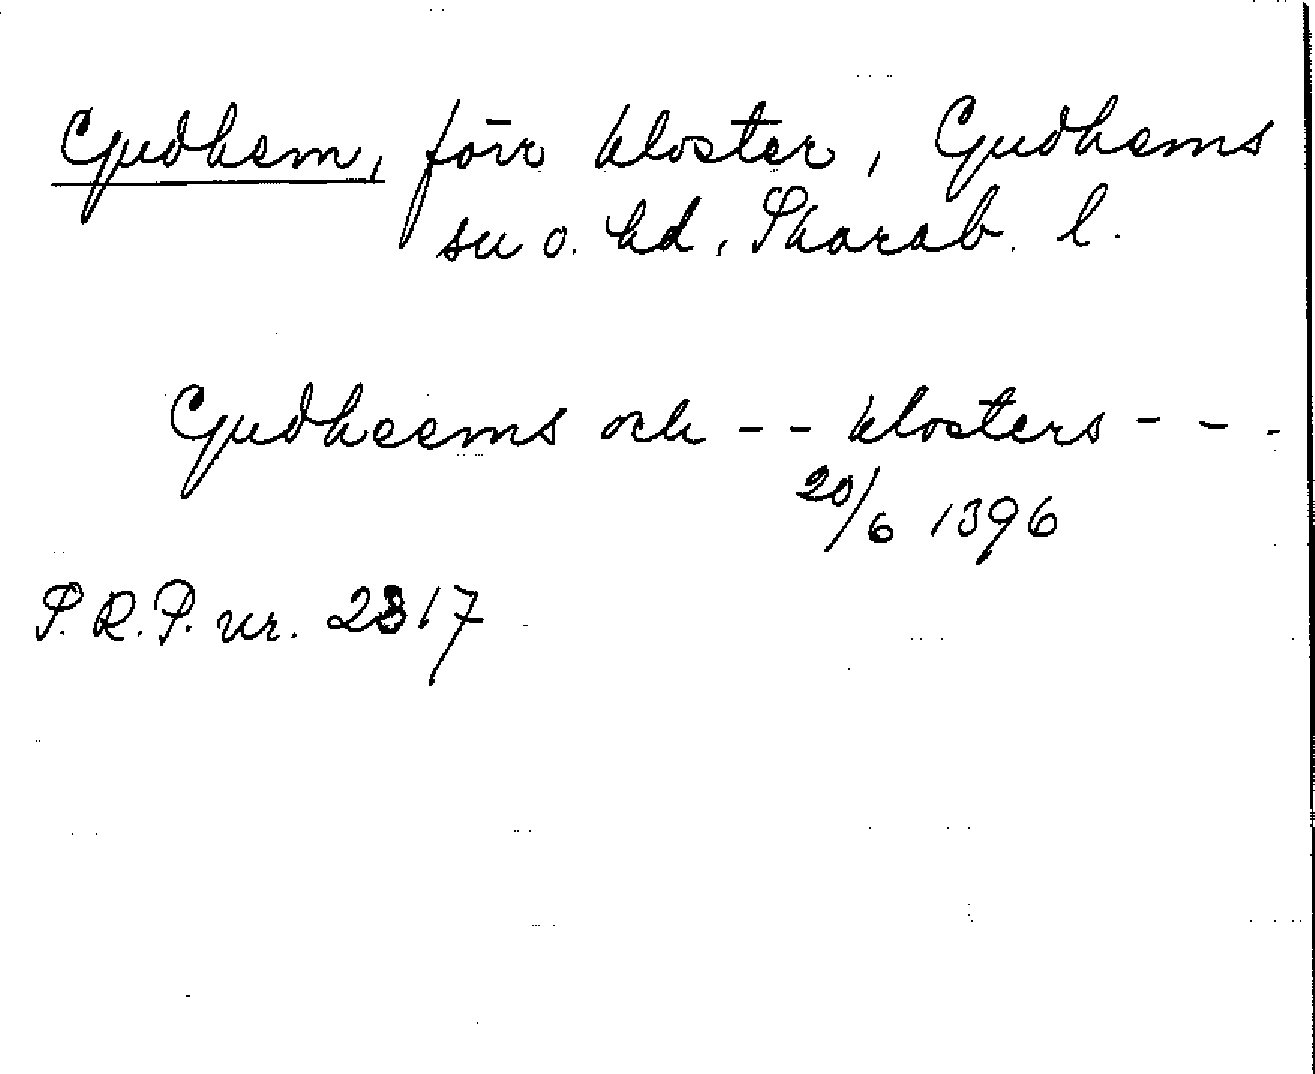 Gudhem, förr kloster, Gudhems
sn o. hd, Skarab. l.
Gudheems och - - klosters - - -
20/6 1396
P. R. P. nr. 2817